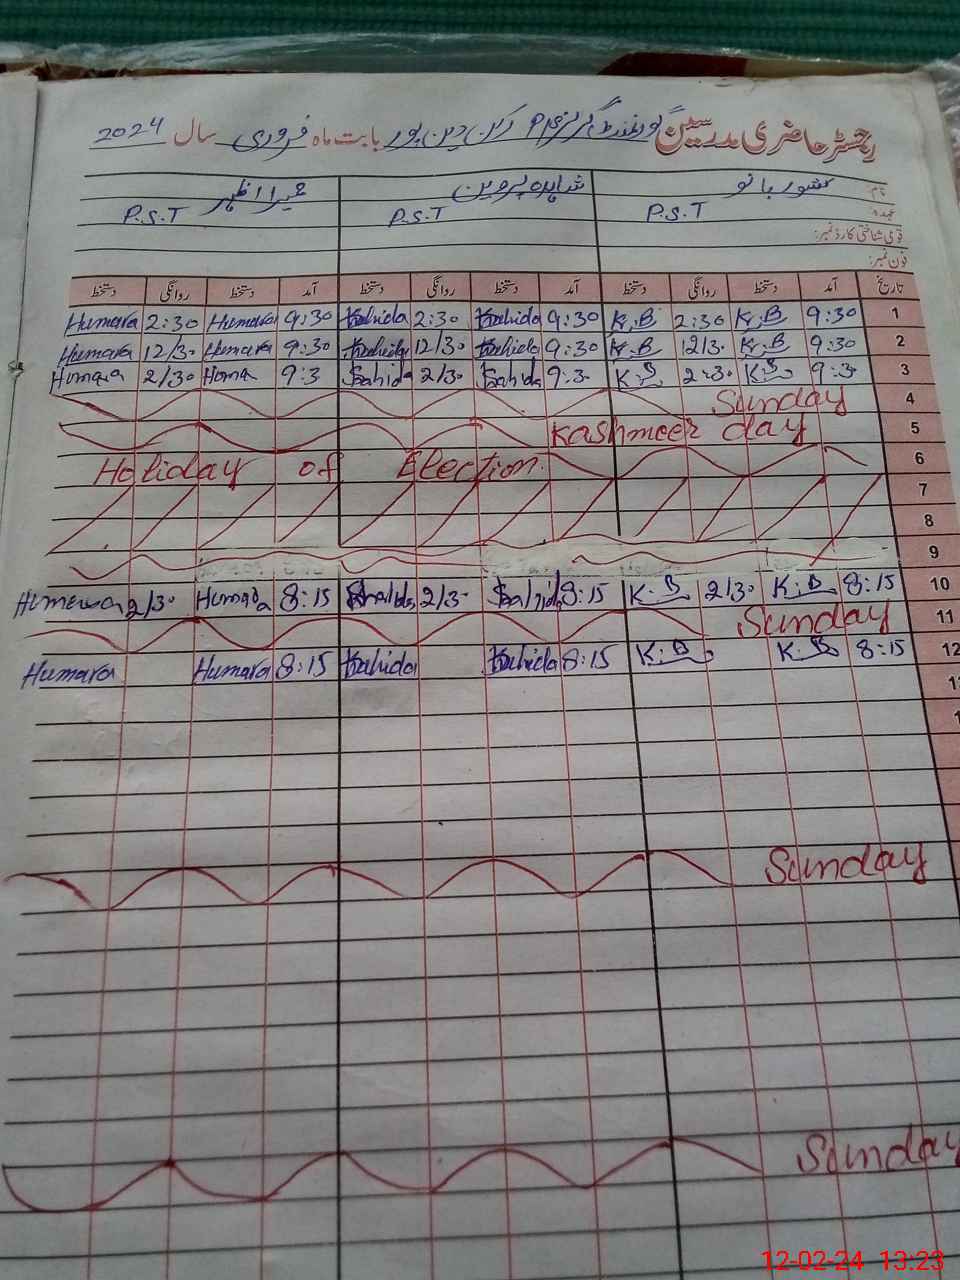 رجسٹر حاضری مدرسین گورنمنٹ گرلز P کرین دین پور بابت ماہ فروری سال 2024
نام: کشور بانو شاہدہ پروین حمیرا اظہر
عہدہ: P.S.T P.S.T P.S.T
قومی شناختی کارڈ نمبر:
فون نمبر:
تاریخ آمد دستخط روانگی دستخط آمد دستخط روانگی دستخط آمد دستخط روانگی دستخط
Humara 2:30 Humara 9:30 2:30 9:30 K.B 2:30 K.B 9:30 1
Humara 12/30 Humara 9:30 12/30 9:30 K.B 12/3. K.B 9:30 2
Humara 2/30 Homa 9:3 Sahida 2/3. Sahida 9:3. K.B 2:30 K.B 9:3. 3
Sunday 4
Kashmeer day 5
Holiday of Election. 6
7
8
9
2/3. Humara 8:15 2/3. 8:15 K.B 2/3. K.B 8:15 10
Sunday 11
Humara Humara 8:15 8:15 K.B K.B 8:15 12
Sunday
Sunday
12-02-24 13:23